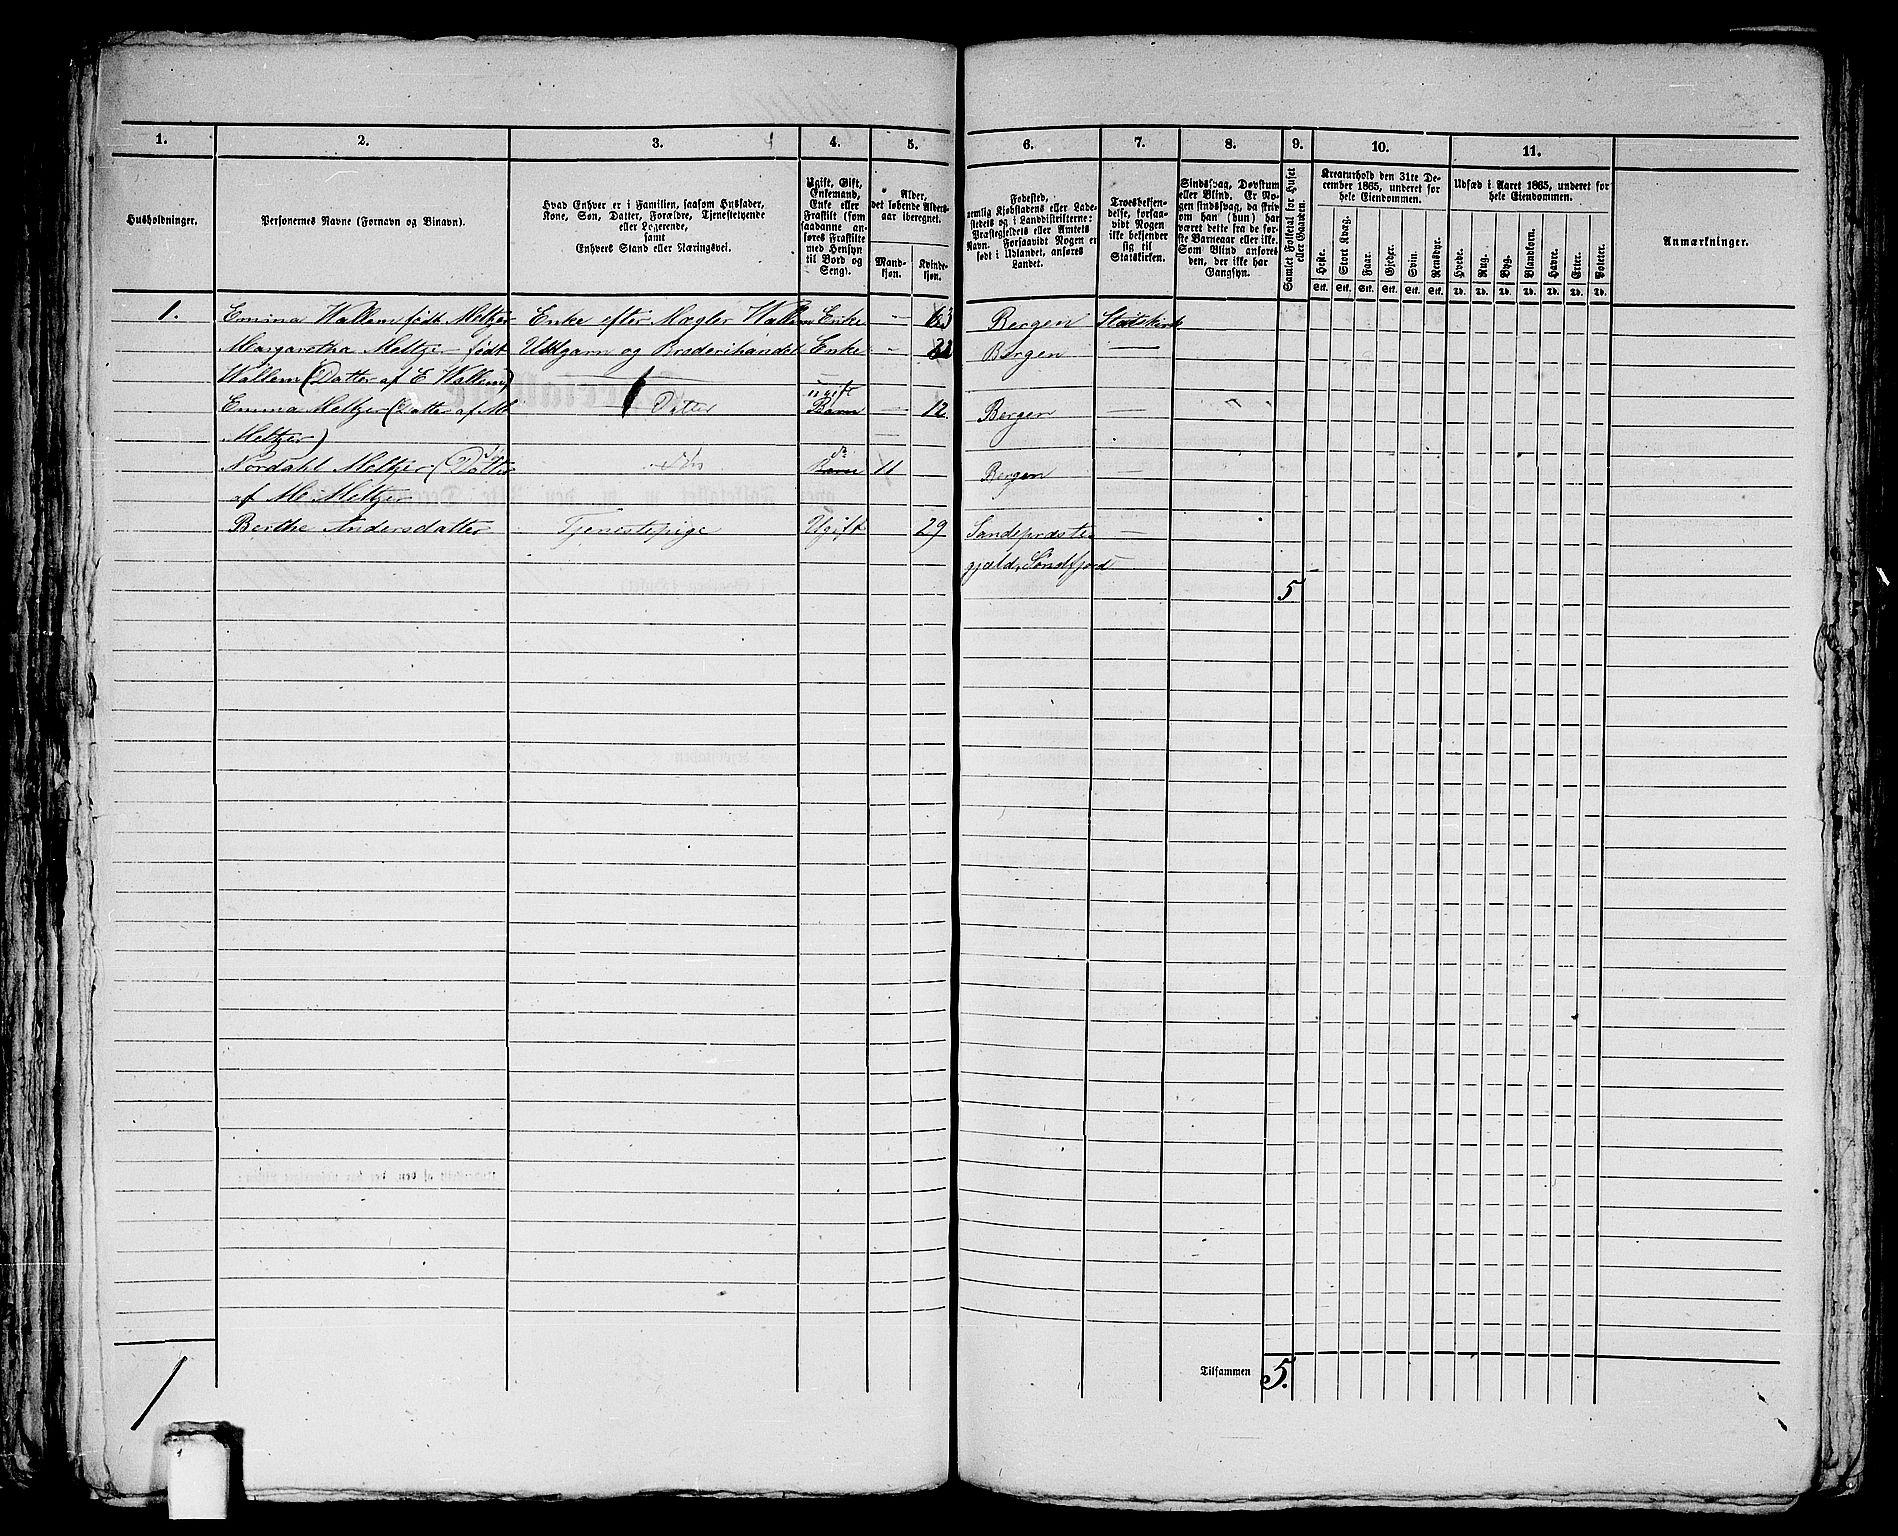 1. 2. 3. 4. 5. 6. 7. 8. 9. 10. 11.
Husholdninger.
Personernes Navne (Fornavn og Binavn).
Hvad Enhver er i Familien, saasom Husfader,
Kone, Søn, Datter, Forældre, Tjenestetyende
eller Logerende,
samt
Enhvers Stand eller Næringsvei.
Ugift, Gift,
Enkemand,
Enke eller
Fraskilt (som
saadanne an-
føres Fraskilte
med Hensyn
til Bord og
Seng).
Alder,
det løbende Alders-
aar iberegnet.
Mand-
kjøn.
Kvinde-
kjøn.
Fødested,
nemlig Kjøbstadens eller Lade-
stedets og i Landdistrikterne:
Præstegjeldets eller Amtets
Navn. Forsaavidt Nogen er
født i Udlandet, anføres
Landet.
Troesbekjen-
delse, forsaa-
vidt Nogen
ikke bekjender
sig til
Statskirken.
Sindssvag, Døvstum
eller Blind. Er No-
gen sindssvag, da frid
om han (hun) har
været dette fra de før-
ste Barneaar eller ikke.
Som Blind anføres
den, der ikke har
Gangsyn.
Samlet Folketal for Huset
eller Gaarden.
Kreaturhold den 31te De-
cember 1865, underet for
hele Eiendommen.
Heste. Stort Kvæg. Faar. Gjeder. Svin. Rensdyr.
Stk. Stk. Stk. Stk. Stk. Stk.
Udsæd i Aaret 1865, underet for
hele Eiendommen.
Hvede. Rug. Byg. Blandkorn. Havre. Erter. Poteter.
Td. Td. Td. Td. Td. Td. Td.
Anmærkninger.
1. Emina Wallem født Meltzer Enke efter Mægler Wallem Enke — 63 Bergen Statskirk
Margaretha Meltzer født Uldgarn og Broderihandel Enke — Bergen —
Wallem (Datter af E Wallem)
ugift
Emma Meltzer (Datter af M Datter Barn — 12. Bergen —
Meltzer)
Nordahl Meltzer (Datter Søn Barn 11 Bergen —
af M. Meltzer
Berthe Andersdatter Tjenestepige Ugift 29 Sandepræste —
gjæld, Søndfjord
5
Tilsammen 5.
1